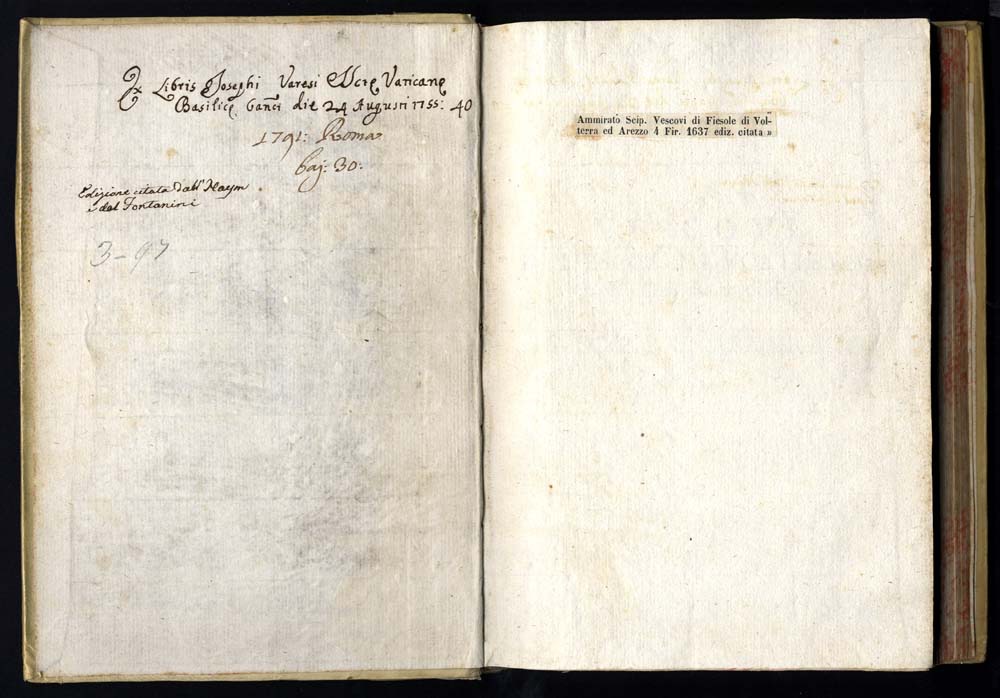 Ex Libris Josephi Varesi Vaticane
Basilice die 24 Augusti 1755: 40
1791: Roma
baj: 30:
Edizione citata dall' Haym
e dal Fontanini
3-97
Ammirato Scip. Vescovi di Fiesole di Vol-
terra ed Arezzo 4 Fir. 1637 ediz. citata »